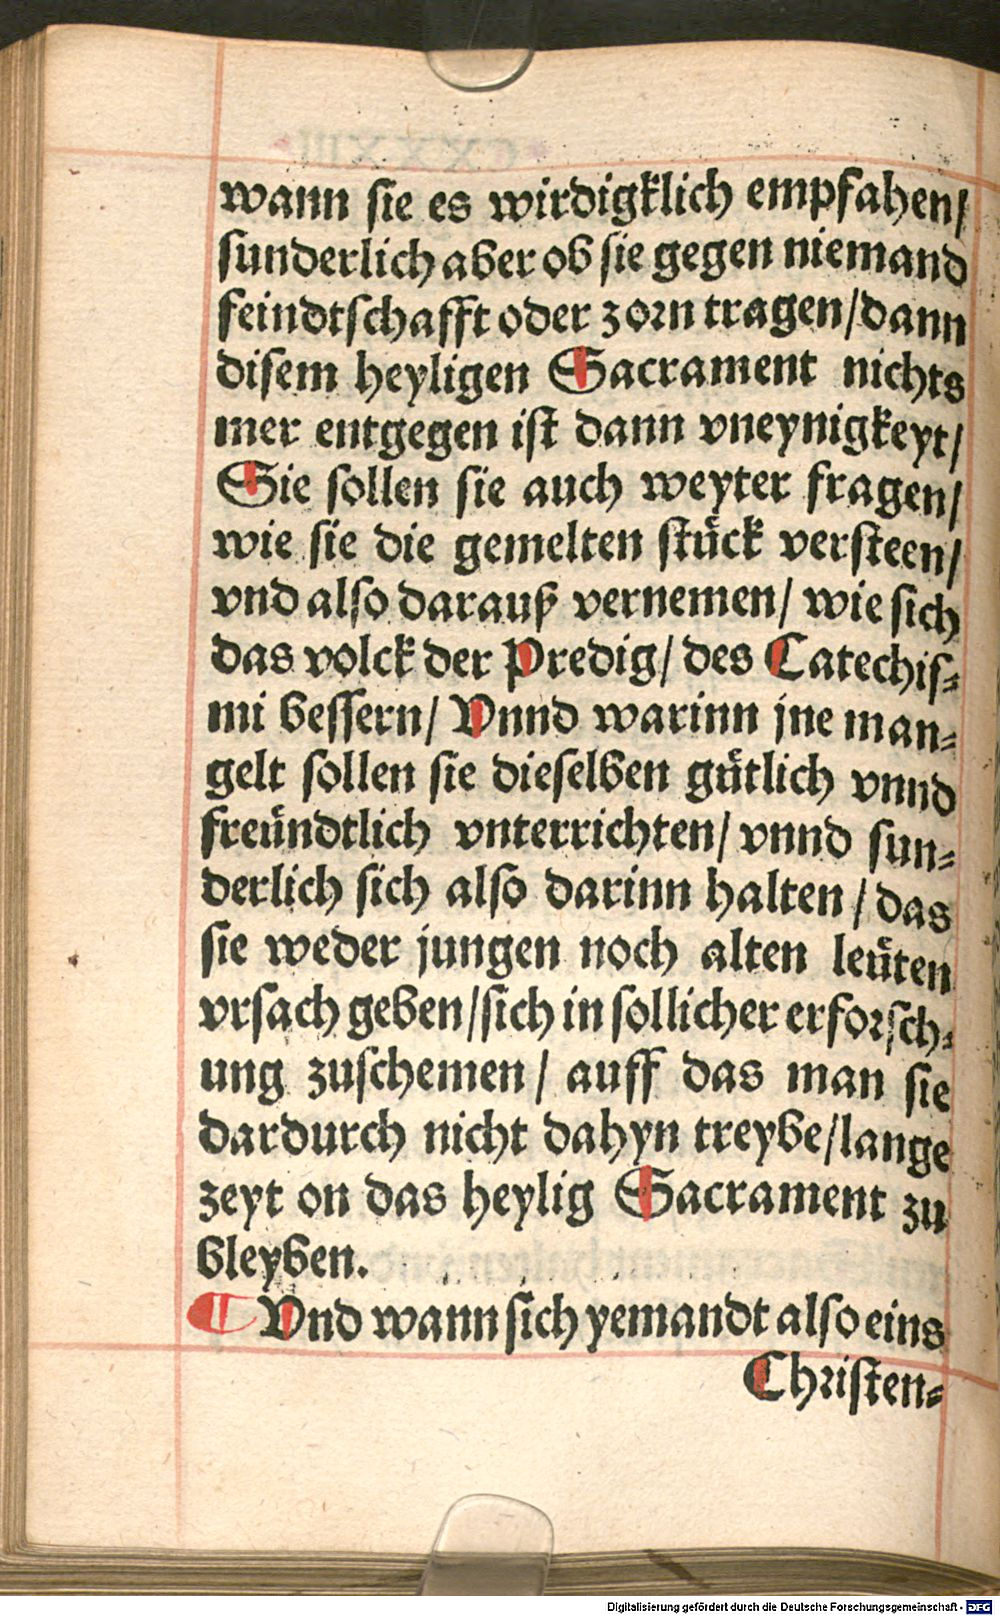 wann sie es wirdigklich empfahen/
sunderlich aber ob sie gegen niemand
feindtschafft oder zorn tragen/dann
disem heyligen Sacrament nichts
mer entgegen ist dann vneynigkeyt/
Sie sollen sie auch weyter fragen/
wie sie die gemelten stuͤck versteen/
vnd also darauß vernemen/ wie sich
das volck der Predig/ des Catechis⸗
mi bessern/ Vnnd warinn jne man⸗
gelt sollen sie dieselben guͤtlich vnnd
freuͤndtlich vnterrichten/ vnnd sun⸗
derlich sich also darinn halten/ das
sie weder jungen noch alten leuͤten
vrsach geben/sich in sollicher erforsch⸗
ung zuschemen/ auff das man sie
dardurch nicht dahyn treybe/lange
zeyt on das heylig Sacrament zu
bleyben.
¶ Vnd wann sich yemandt also eins
Christen⸗
Digitalisierung gefördert durch die Deutsche Forschungsgemeinschaft - DFG